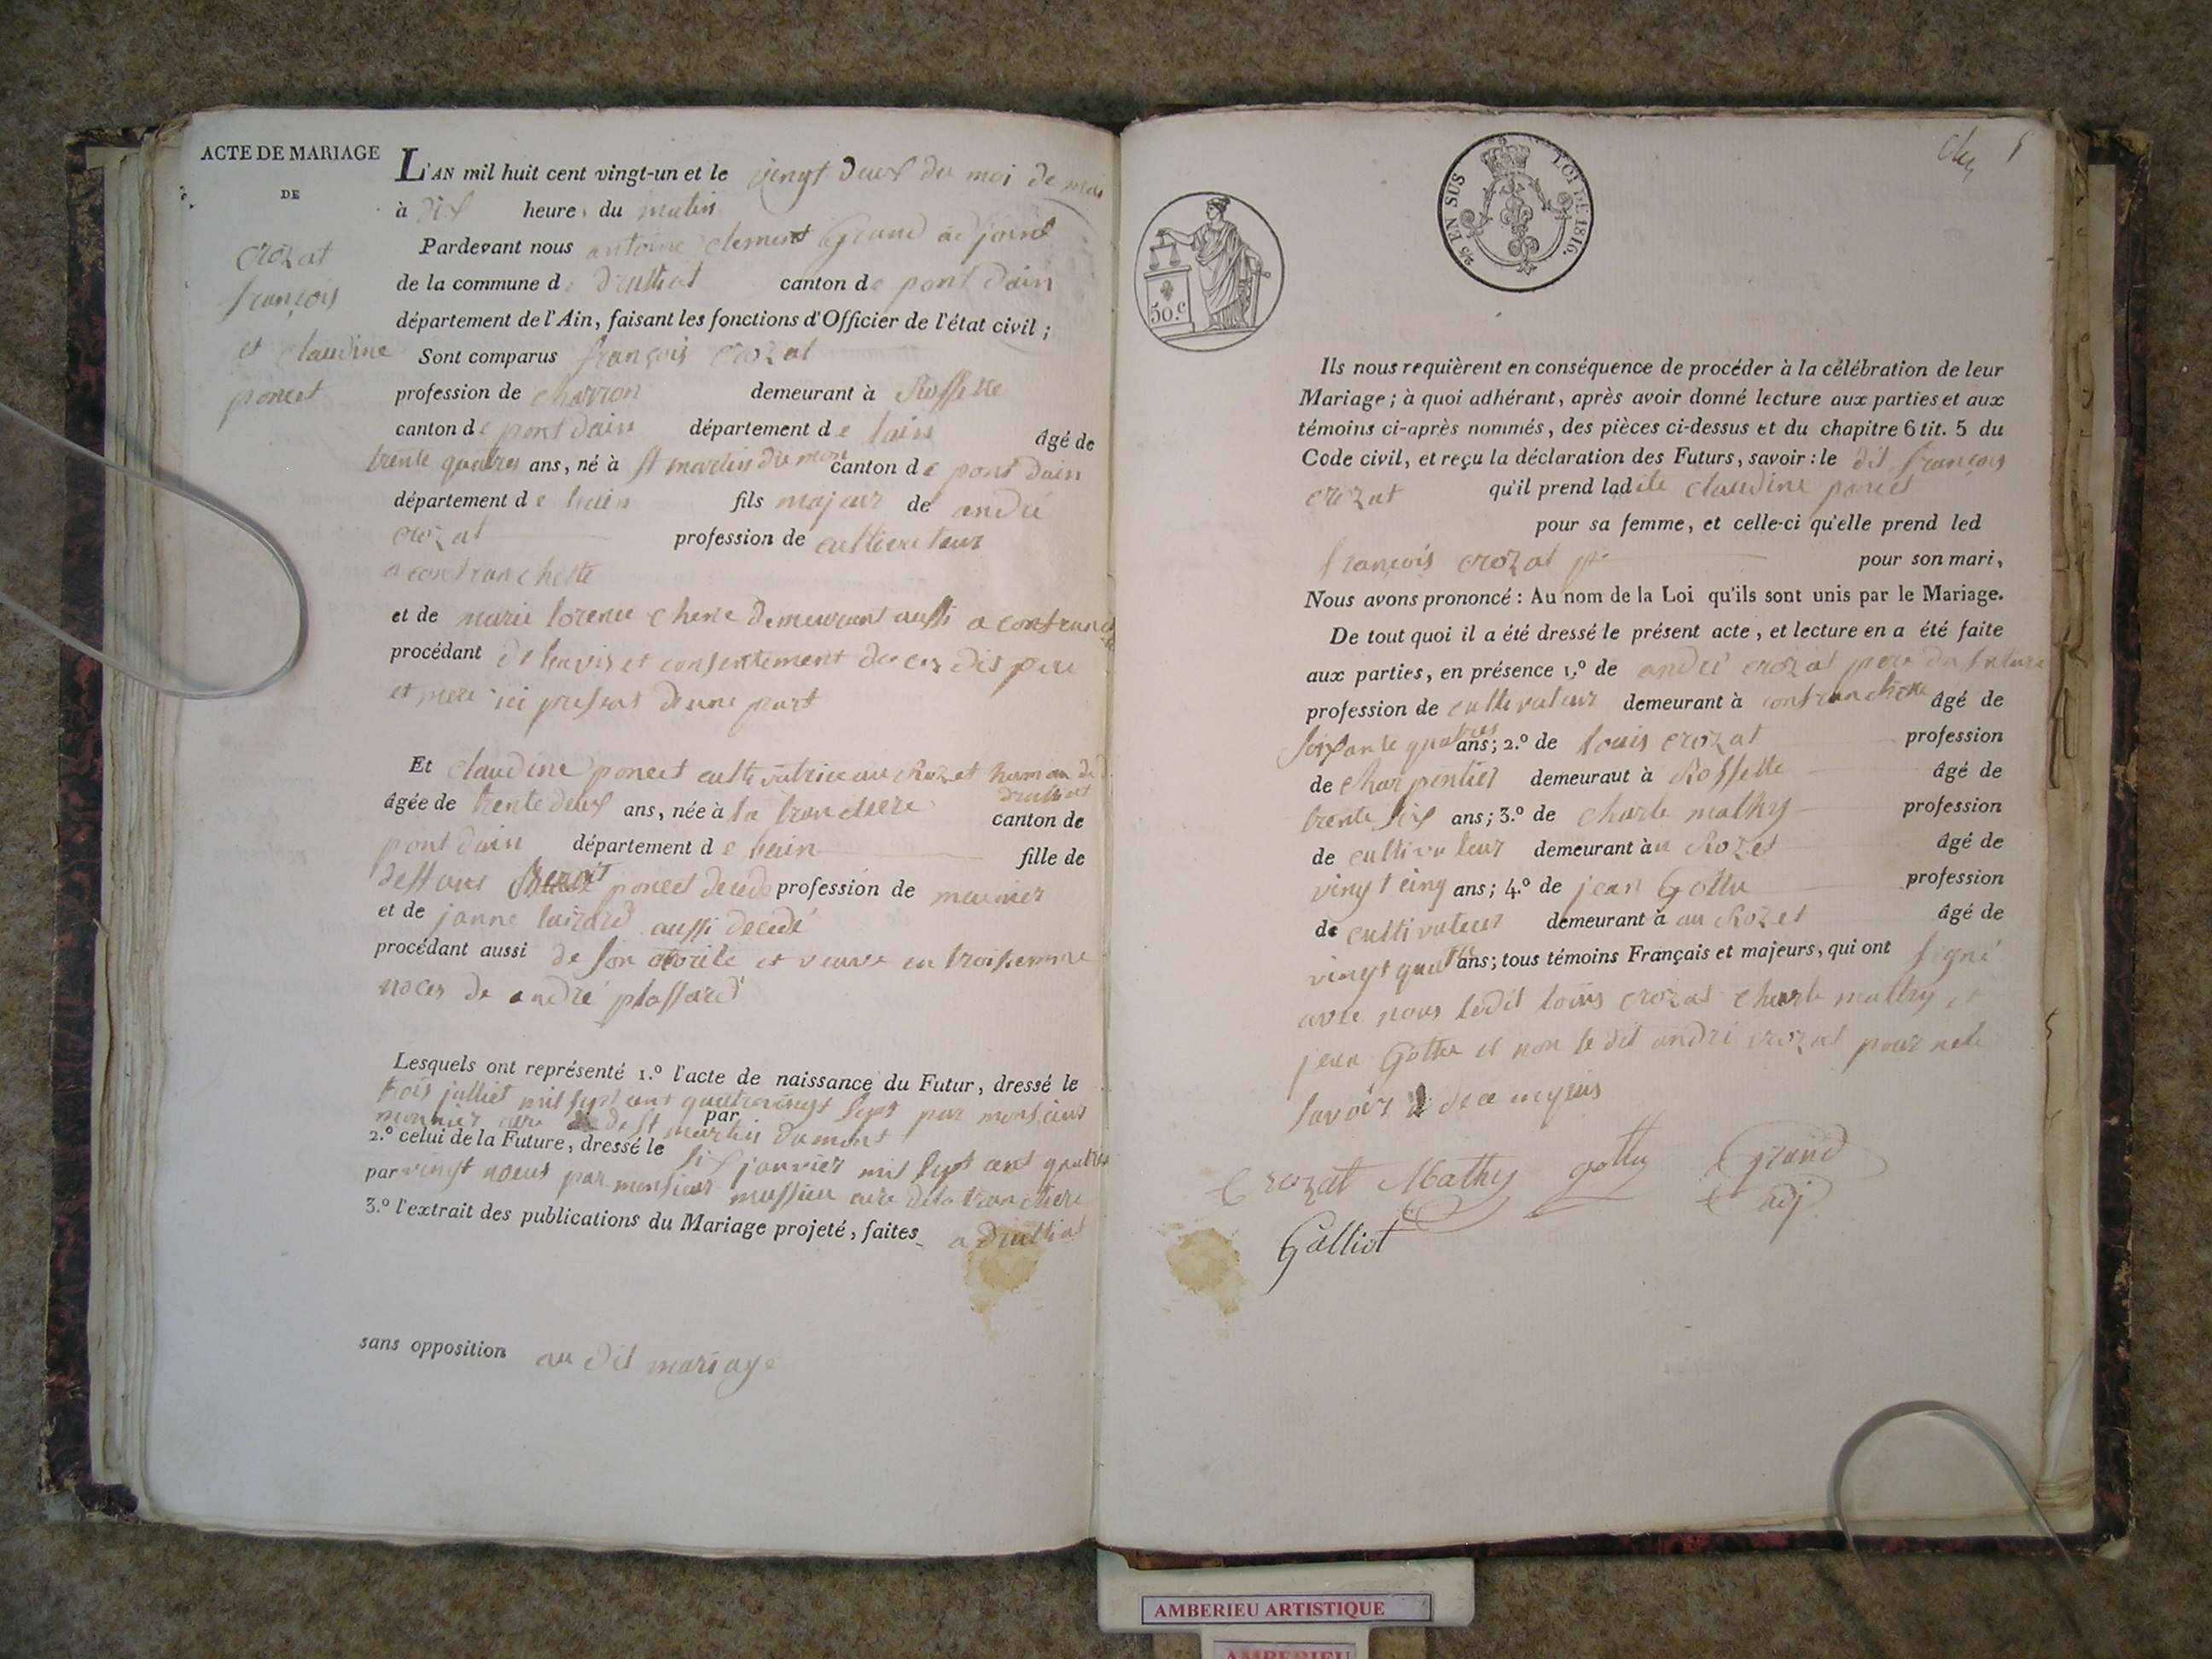 ACTE DE MARIAGE
DE
crozat
françois
et claudine
poncet
L'AN mil huit cent vingt-un et le vingt deux du moi de
à dix heures du matin
Pardevant nous antoine clement Grand adjoint
de la commune de druillat canton de pont dain
département de l'Ain, faisant les fonctions d'Officier de l'état civil ;
Sont comparus françois crozat
profession de charron demeurant à Rossette
canton de pont dain département de lain âgé de
trente quatres ans, né à st martin du mon canton de pont dain
département de lain fils majeur de andré
crozat profession de cultivateur
a confranchette
et de marie demeurant aussi a
procédant de lavis et consentement de ces dis pere
et mere ici present dune part
Et claudine poncet cultivatrice au Rozet hamau de
druillat
âgée de trente deux ans, née à la tranclière canton de
pont dain département de lain fille de
deffunt Benoit poncet decede profession de meunier
et de janne aussi decedé
procédant aussi de son et veuve en troisemme
noces de andré plassard
Lesquels ont représenté 1.º l'acte de naissance du Futur, dressé le
trois julliet mil sept cent quatrevingt sept par monsieur
par
monnier cure de st martin du mont
2.º celui de la Future, dressé le six janvier mil sept cent quatre
par vingt noeuf par monsieur cure de la tranclière
3.º l'extrait des publications du Mariage projeté, faites a druillat
sans opposition au dit mariage
5
2/5 EN SUS LOI DE 1816.
50.c
Ils nous requièrent en conséquence de procéder à la célébration de leur
Mariage ; à quoi adhérant, après avoir donné lecture aux parties et aux
témoins ci-après nommés, des pièces ci-dessus et du chapitre 6 tit. 5 du
Code civil, et reçu la déclaration des Futurs, savoir : le dit françois
crozat qu'il prend ladite claudine poncet
pour sa femme, et celle-ci qu'elle prend led
françois crozat pour son mari,
Nous avons prononcé : Au nom de la Loi qu'ils sont unis par le Mariage.
De tout quoi il a été dressé le présent acte, et lecture en a été faite
aux parties, en présence 1.º de andré crozat pere du futur
profession de cultivateur demeurant à confranchette âgé de
soixante quatres ans ; 2.º de louis crozat profession
de charpentier demeuraut à Rossette âgé de
trente six ans ; 3.º de charle mathy profession
de cultivateur demeurant à au Rozet âgé de
vingt cinq ans ; 4.º de jean Gottu profession
de cultivateur demeurant à au Rozet âgé de
vingt quatre ans ; tous témoins Français et majeurs, qui ont signé
avec nous ledit louis crozat charle mathy et
jean Gottu et non le dit andré crozat pour ne le
savoir de ce enquis
Crozat Mathy gottu Grand
adj
Galliot
AMBERIEU ARTISTIQUE
AMBERIEU